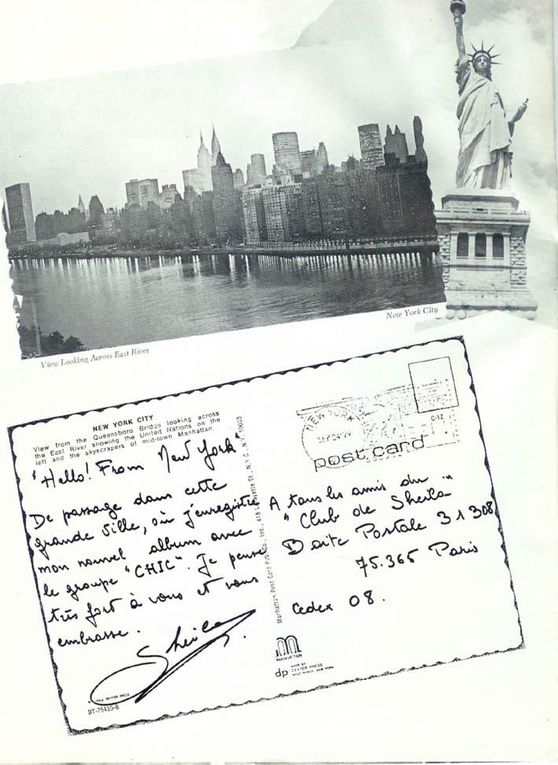 New York City
View Looking Across East River
NEW YORK CITY
View from the Queensboro Bridge looking across
the East River showing the United Nations on the
left and the skyscrapers of mid-town Manhattan.
"Hello! From New York"
De passage dans cette
grande ville, où j'enregistre
mon nouvel album avec
le groupe "CHIC". Je pense
très fort à vous et vous
embrasse.
Sheila
DT-75433-B
Manhattan Post Card Pub. Co., Inc., N.Y.C., N.Y. 10003
NEW YORK
post card
A tous les amis du
"Club de Sheila"
Boite Postale 31308
75.365 Paris
Cedex 08.
MANHATTAN
MADE BY
dp DEXTER PRESS
WEST NYACK, NEW YORK